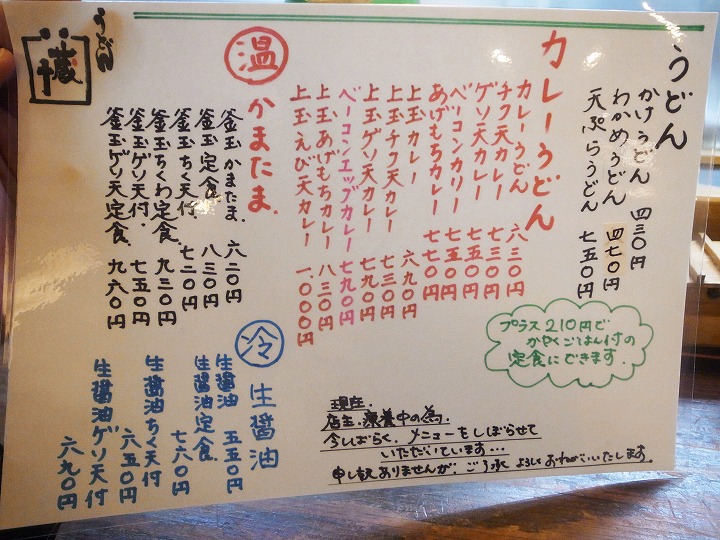 うどん
かけうどん 四三〇円
わかめうどん 四七〇円
天ぷらうどん 七五〇円
カレーうどん
カレーうどん 六三〇円
チク天カレー 七三〇円
ゲソ天カレー 七五〇円
ベーコンカリー 七五〇円
あげもちカレー 七七〇円
上玉カレー 六九〇円
上玉チク天カレー 七三〇円
上玉ゲソ天カレー 七九〇円
ベーコンエッグカレー 七九〇円
上玉あげもちカレー 八三〇円
上玉えび天カレー 一、〇〇〇円
プラス210円で
かやくごはん付の
定食にできます。
温 かまたま
釜玉かまたま 六二〇円
釜玉定食 八三〇円
釜玉ちく天付 七二〇円
釜玉ちくわ定食 九三〇円
釜玉ゲソ天付 七五〇円
釜玉ゲソ天定食 九六〇円
冷 生醤油
生醤油 五五〇円
生醤油定食 七六〇円
生醤油ちく天付 六五〇円
生醤油ゲソ天付 六九〇円
現在、
店主、療養中の為、
今しばらく、メニューをしぼらせて
いただいています…
申し訳ありませんが、ご了承 よろしくおねがいいたします。
うどん
蔵十